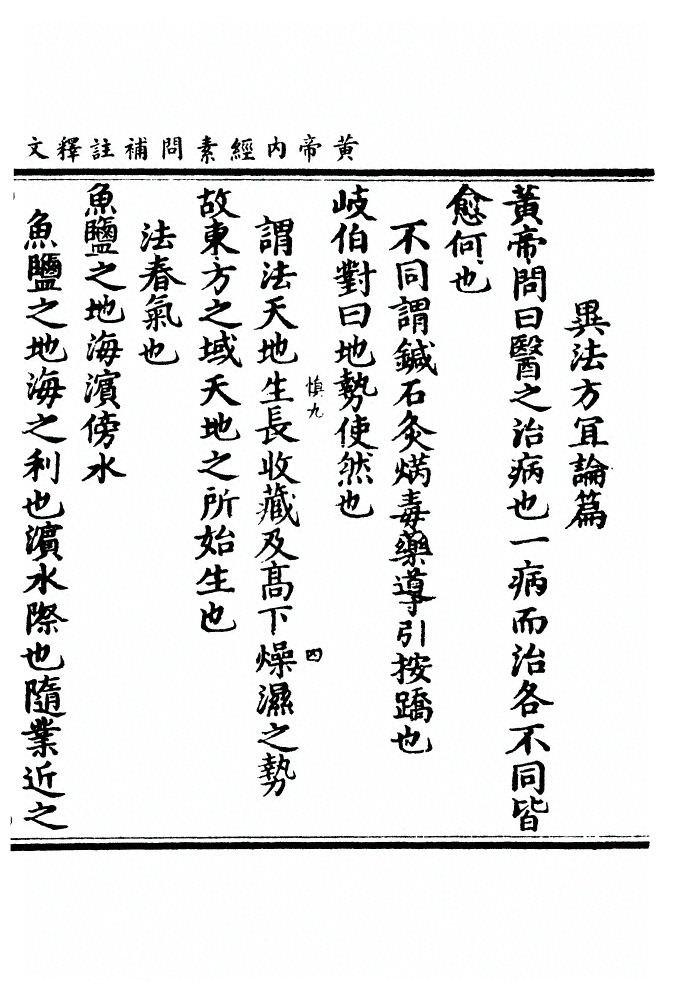 黃帝內經素問補註釋文
異法方冝論篇
黃帝問曰醫之治病也一病而治各不同皆
愈何也
不同謂鍼石灸焫毒藥導引按蹻也
岐伯對曰地勢使然也
慎九
四
謂法天地生長收藏及髙下燥濕之勢
故東方之域天地之所始生也
法春氣也
魚鹽之地海濵傍水
魚鹽之地海之利也濵水際也隨業近之